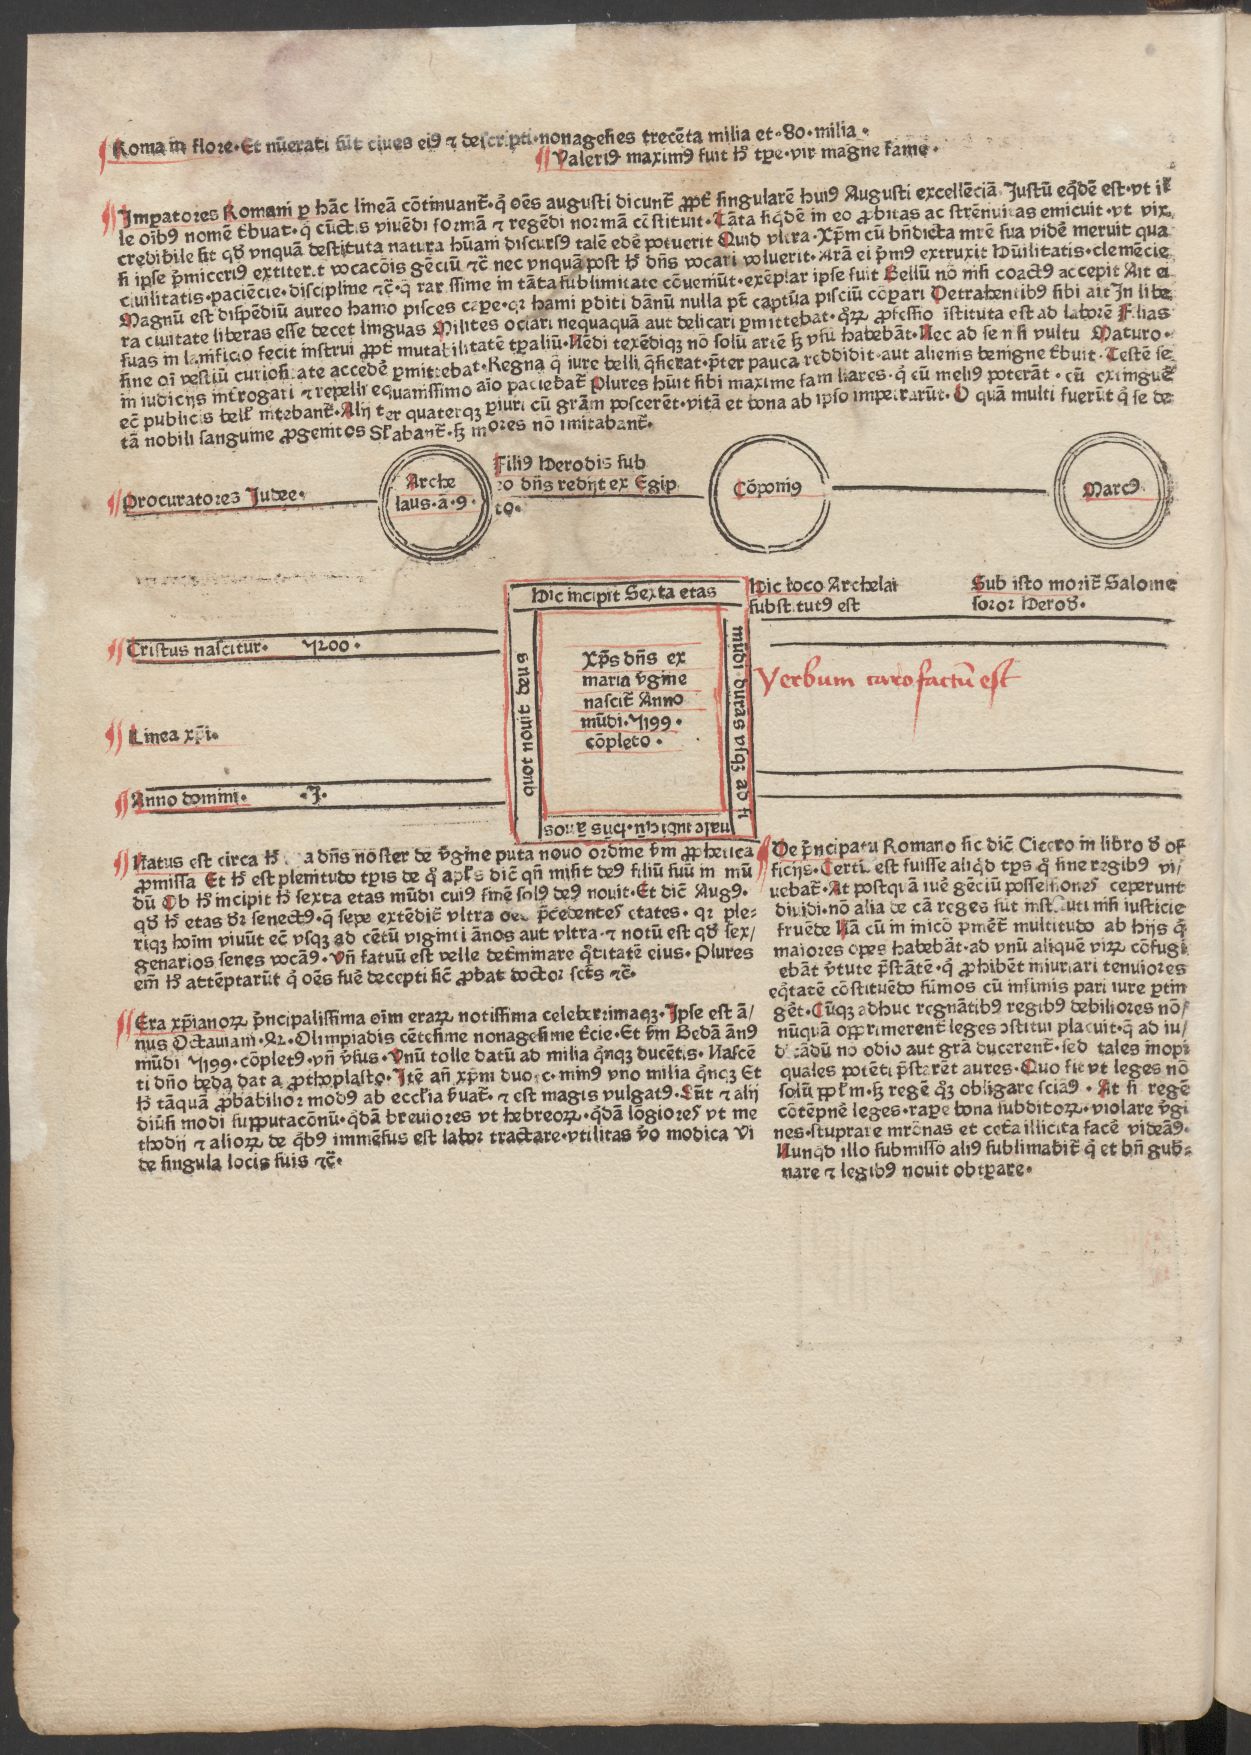 Roma in flore·Et nūerati sūt ciues eiꝰ ⁊ descripti·nonagesies trecēta milia et·80·milia·
Valeriꝰ maximꝰ fuit hͦ tꝑe·vir magne fame·
Impatores Romani ꝑ hāc lineā cōtinuant᷑·q̄ oēs augusti dicunt᷑ ꝓpt᷑ singularē huiꝰ Augusti excellēciā Justū eq̄dē est·vt il
le oīb9 nomē t᷑buat·q̄ cūctis viuēdi formā ⁊ regēdi normā cōstituit·Tāta siq̄dē in eo ꝓbitas ac strēnuitas emicuit·vt vix
credibile sit qd̄ vnquā destituta natura hūani discursꝰ talē edē potuerit Quid vltra·Xp̄m cū bn̄dicta mrē sua vidē meruit qua
si ipse p̄miceriꝰ extiter t vocacōis gēciū ⁊c̄ nec vnquā post hͦ dn̄s vocari voluerit·Arā ei p̄mꝰ extruxit Hūilitatis·clemēcie
ciuilitatis·paciēcie·discipline ⁊c̄·q̄ rar ssime in tāta sublimitate cōueniūt·exēplar ipse fuit Bellū nō nisi coactꝰ accepit Ait ei
Magnū est dispēdiū aureo hamo pisces cape·qr hami ꝑditi dānū nulla pt̄ captūa pisciū cōpari Detrahentibꝰ sibi ait In libe
ra ciuitate liberas esse decet linguas Milites ociari nequaquā aut delicari ꝑmittebat·qꝛꝝ ꝓfessio istituta est ad laborē Filias
suas in lanificio fecit instrui ꝓpt᷑ mutabilitatē tꝑaliū·Nēdi texēdiqꝫ nō solū artē sꝫ vsū habebāt·Nec ad se n si vultu Maturo·
sine oī vestiū curiositate accedē ꝑmittebat·Regna q̄ iure belli q̄sierat·p̄ter pauca reddidit·aut alienis benigne t᷑buit·Testē se
in iudicijs introgari ⁊ repelli equanissimo aīo paciebat᷑ Plures hūit sibi maxime familiares·q̄ cū meliꝰ poterāt·cū extingue᷑
ec̄ publicis bell᷑ nitebant᷑·Alij ter quaterqꝫ ꝑiuri cū grām poscerēt·vitā et bona ab ipso impetrarūt·O quā multi fuerūt q̄ se de
tā nobili sanguine ꝓgenitos Gl̄abant᷑·sꝫ mores nō imitabant᷑·
Procuratores Judee·
Arche
laus·ā·9·
Filiꝰ Herodis sub
ro dn̄s redijt ex Egip
to·
Cōponiꝰ
Marcꝰ
Hic incipit Sexta etas
mūdi·durās vsqꝫ ad fi
nē·cuiꝰ fines ānos
quot nouit deus
Hic loco Archelai
substitutꝰ est
Sub isto morit᷑ Salome
soror Herod̄·
Cristus nascitur· 5200·
Xp̄s dn̄s ex
maria v̄gine
nascit᷑ Anno
mūdi·5199·
cōpleto·
Verbum caro factū est
Linea xp̄i·
Anno domini· ·1·
Natus est circa hͦ a dn̄s noster de v̄gine puta nouo ordine s̄m ꝓphetica
ꝓmissa Et hͦ est plenitudo tꝑis de q̄ apl̄s dic̄ qn̄ misit deꝰ filiū suū in mū
dū Ob hͦ incipit hͦ sexta etas mūdi cuiꝰ finē solꝰ deꝰ nouit·Et dic̄ Augꝰ·
qd̄ hͦ etas dr̄ senectꝰ·q̄ sepe extēdit᷑ vltra oēs p̄cedentes etates·qr ple⸗
riqꝫ hoīm viuūt ec̄ vsqꝫ ad cētū viginti ānos aut vltra·⁊ notū est qd̄ sex/
genarios senes vocāꝰ·Vn̄ fatuū est velle determinare q̄titatē eius·Plures
em̄ hͦ attēptarūt q̄ oēs fuē decepti sic̄ ꝓbat doctor sctūs ⁊c̄·
Era xp̄ianoꝝ p̄ncipalissima oīm eraꝝ notissima celeberrimaqꝫ·Ipse est ā/
nus Octauiani·42·Olimpiadis cētesime nonagesime t᷑cie·Et s̄m Bedā ānꝰ
mūdi 5199·cōpletꝰ·vn̄ v̄sus·Vnū tolle datū ad milia q̄nqꝫ ducētis·Nascē
ti dn̄o beda dat a ꝓthoplasto·Itē an̄ xp̄m duo·c·minꝰ vno milia q̄nqꝫ Et
hͦ tāquā ꝓbabilior modꝰ ab eccl̄ia s̄uat᷑·⁊ est magis vulgatꝰ·Sūt ⁊ alij
diūsi modi supputacōnū·q̄dā breuiores vt hebreoꝝ·q̄dā lōgiores vt me
thodij ⁊ alioꝝ de q̄bꝰ immēsus est labor tractare·vtilitas v̄o modica Vi
de singula locis suis ⁊c̄·
De p̄ncipatu Romano sic dic̄ Cicero in libro d̄ of
ficijs·Certū est fuisse aliq̄d tꝑs q̄ sine regibꝰ vi/
uebat᷑·At postquā iuē gēciū possessiones ceperunt
diuidi·nō alia de cā reges sūt instituti nisi iusticie
fruēde Nā cū in inicō p̄met᷑ multitudo ab hijs q̄
maiores opes habebāt·ad vnū aliquē virꝝ cōfugi
ebāt v̄tute p̄stātē·q̄ ꝓhibēt iniuriari tenuiores
eq̄tatē cōstituēdo sūmos cū infimis pari iure ꝑtin
gēt·Cūqꝫ adhuc regnātibꝰ regibꝰ debiliores nō/
nūquā opprimerent᷑ leges ꝯstitui placuit·q̄ ad iu/
dicādū nō odio aut grā ducerent᷑·sed tales inopi
quales potēti p̄starēt aures·Quo fit vt leges nō
solū ppl̄m·sꝫ regē qꝫ obligare sciāꝰ·At si regē
cōtēpnē leges·rape bona subditoꝝ·violare v̄gi
nes·stuprare mr̄onas et cet᷑a illicita facē videāꝰ·
Nunqd̄ illo submisso aliꝰ sublimabit᷑ q̄ et bn̄ gub⸗
nare ⁊ legibꝰ nouit obtꝑare·